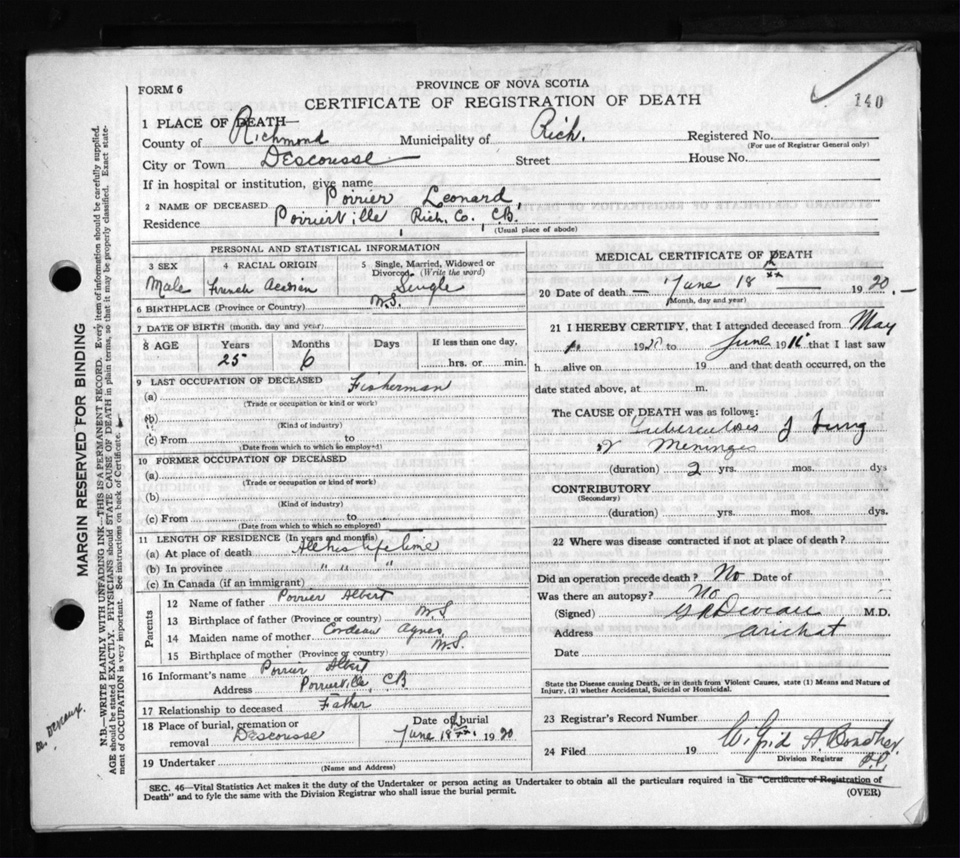 140
FORM 6
PROVINCE OF NOVA SCOTIA
CERTIFICATE OF REGISTRATION OF DEATH
1 PLACE OF DEATH—
County of Richmond Municipality of Rich. Registered No.
(For use of Registrar General only)
City or Town DEscousse Street House No.
If in hospital or institution, give name
2 NAME OF DECEASED Poirier Leonard,
Residence Poirierville Rich. Co. C.B.
(Usual place of abode)
MARGIN RESERVED FOR BINDING
N.B.—WRITE PLAINLY WITH UNFADING INK—THIS IS A PERMANENT RECORD. Every item of information should be carefully supplied.
AGE should be stated EXACTLY. PHYSICIANS should STATE CAUSE OF DEATH in plain terms, so that it may be properly classified. Exact state-
ment of OCCUPATION is very important. See instructions on back of Certificate.
PERSONAL AND STATISTICAL INFORMATION
3 SEX
Male
4 RACIAL ORIGIN
French
5 Single, Married, Widowed or
Divorced (Write the word)
Single
6 BIRTHPLACE (Province or Country) N.S.
7 DATE OF BIRTH (month, day and year)
8 AGE Years Months Days If less than one day,
25 6 hrs. or min.
9 LAST OCCUPATION OF DECEASED
(a) Fisherman
(Trade or occupation or kind or work)
(b)
(Kind of industry)
(c) From to
(Date from which to which in employed)
10 FORMER OCCUPATION OF DECEASED
(a)
(Trade or occupation or kind of work)
(b)
(Kind of industry)
(c) From to
(Date from which to which so employed)
11 LENGTH OF RESIDENCE (In years and months)
(a) At place of death All his lifetime
(b) In province " " "
(c) In Canada (if an immigrant)
Parents
12 Name of father Poirier Albert
13 Birthplace of father (Province or country) N.S
14 Maiden name of mother Agnes
15 Birthplace of mother (Province or country) N.S.
16 Informant's name Poirier Albert
Address Poirierville, CB
17 Relationship to deceased Father
18 Place of burial, cremation or
removal Descousse
Date of burial
June 18 1920
19 Undertaker
(Name and Address)
MEDICAL CERTIFICATE OF DEATH
20 Date of death — June 18 — 1920.—
(Month, day and year)
21 I HEREBY CERTIFY, that I attended deceased from May
1920 to June 1916 that I last saw
h alive on 19 and that death occurred, on the
date stated above, at m.
The CAUSE OF DEATH was as follows:
Tuberculosis of Lung
& Meninges
(duration) 2 yrs. mos. dys
CONTRIBUTORY
(Secondary)
(duration) yrs. mos. dys.
22 Where was disease contracted if not at place of death?
Did an operation precede death? No Date of
Was there an autopsy? No
(Signed) Deveau M.D.
Address Arichat
Date
State the Disease causing Death, or in death from Violent Causes, state (1) Means and Nature of
Injury, (2) whether Accidental, Suicidal or Homicidal.
23 Registrar's Record Number
24 Filed 19
Division Registrar
SEC. 46—Vital Statistics Act makes it the duty of the Undertaker or person acting as Undertaker to obtain all the particulars required in the "Certificate of Registration of
Death" and to fyle the same with the Division Registrar who shall issue the burial permit. (OVER)